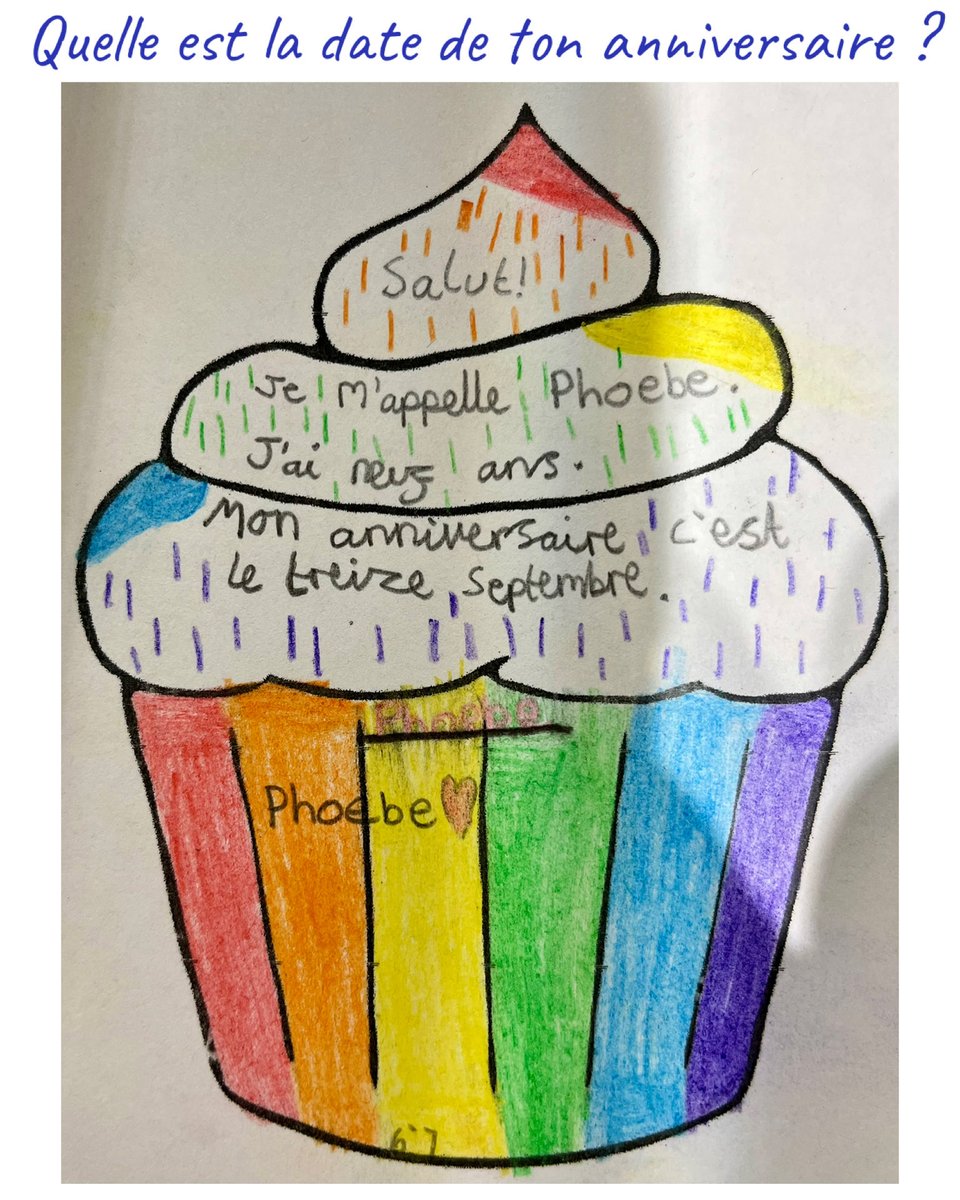 Quelle est la date de ton anniversaire ?
Salut!
Je m'appelle Phoebe.
J'ai neuf ans.
Mon anniversaire c'est
le treize septembre.
Phoebe
Phoebe
6.7